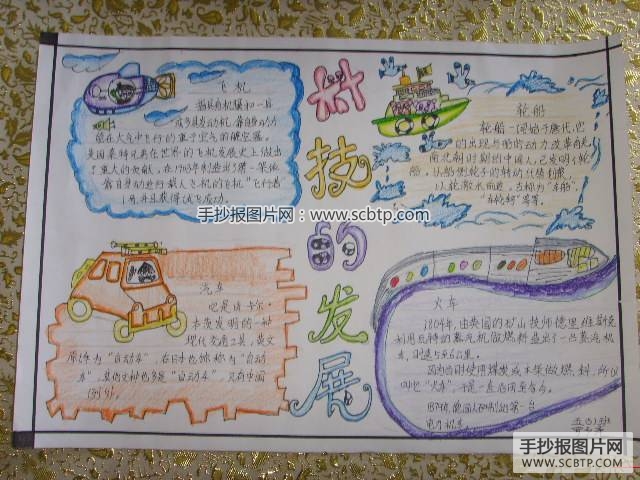 科技的发展
飞机
指具有机翼和一具
或多具发动机,靠自身动力
能在大气中飞行的重于空气的航空器。
美国莱特兄弟在世界的飞机发展史上做出
了重大的贡献,在1903年制造出了第一架依
靠自身动力进行载人飞行的飞机"飞行者
1号",并且获得试飞成功。
轮船
轮船一词始于唐代,它
的出现与船的动力改革有关,
南北朝时期的中国人已发明了轮
船
以轮激水而进,古称为"车船"
"车轮舸"等等。
手抄报图片网:www.scbtp.com
汽车
它是由卡尔·
本茨发明的一种
现代交通工具,英文
原译为"自动车",在日本也称为"自动
车",其他文种也多是"自动车",只有中国
例外。
火车
1804年,由英国的矿山技师德里维斯克
利用瓦特的蒸汽机做燃料造出了一台蒸汽机
车,时速为5至6公里。
因为当时使用煤炭或木柴做燃料,所以
叫它"火车",于是一直沿用至今。
电力机车。
五(3)班
手抄报图片网
WWW.SCBTP.COM